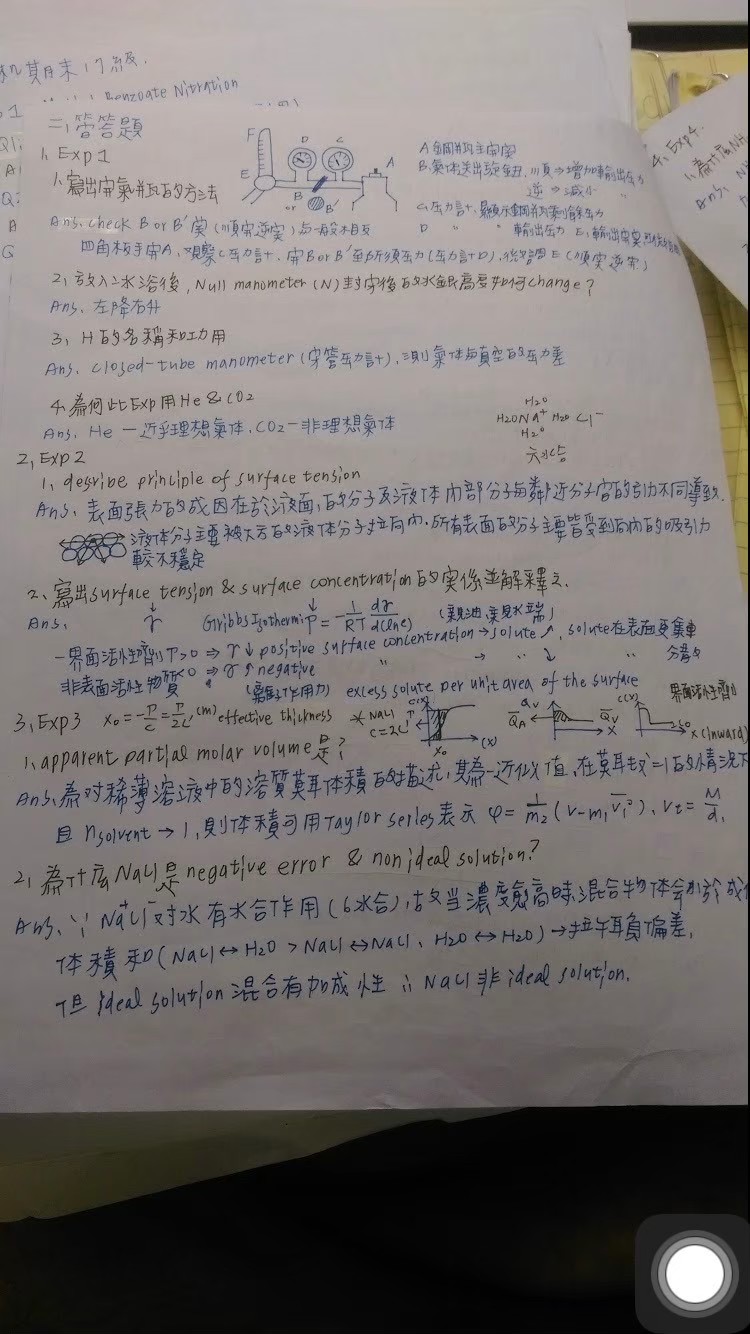 機期末17級.
Benzoate Nitration
二、簡答題
1, Exp1
1, 寫出開氣瓶的方法
F
D
C
E
A
B
or
B'
A 鋼瓶主開關
B, 氣体送出旋鈕, 順⇒增加輸出压力
逆⇒減小 〃
C, 压力計, 顯示鋼瓶內剩餘压力
D 〃 〃 輸出压力 E, 輸出開關
Ans, check B or B' 関 (順開逆関) 与一般相反
四角板手開A, 觀察C压力計, 開B or B' 至所須压力(压力計D), 後調E (順関逆開)
2, 放入水浴後, Null manometer (N) 封守後的水銀高度如何change?
Ans, 左降右升
3, H的名稱和功用
Ans, closed-tube manometer (守管压力計), 測氣体与真空的压力差
4, 為何此Exp用He & CO2
Ans, He－近乎理想氣体, CO2－非理想氣体
H2O
H2O Na+ H2O Cl-
H2O
六水合
2, Exp2
1, describe principle of surface tension
Ans, 表面張力的成因在於液面的分子及液体內部分子与鄰近分子間的引力不同導致.
液体分子主要被大方的液体分子拉向內. 所有表面的分子主要皆受到向內的吸引力
較不穩定
2, 寫出surface tension & surface concentration的関係並解釋之.
Ans, γ Gribbs Isotherm Γ = -1/RT dγ/d(lnc) (親油、親水端)
一界面活性劑 Γ>0 ⇒ γ↓ positive surface concentration → solute↗, solute在表面更集中
非表面活性物質<0 ⇒ γ↑ negative 〃 → 〃 ↘ 〃 分散
(離子作用力) excess solute per unit area of the surface
界面活性劑
3, Exp3 x0 = -Γ/c = Γ/2c, (m) effective thickness * NaCl
C=2c
x0
(x)
x
x (inward)
1, apparent partial molar volume是?
Ans, 為對稀薄溶液中的溶質莫耳体積的描述, 其為一近似值, 在莫耳數=1的情況下
且 nsolvent → 1, 則体積可用Taylor series表示 φ = 1/m2 (V-m1V1°), Vt = M/d,
2, 為什麼NaCl是negative error & non ideal solution?
Ans, ∵ Na+Cl-对水有水合作用(6水合), 故当濃度愈高時, 混合物体会小於成份
体積和 (NaCl↔H2O > NaCl↔NaCl、H2O↔H2O) → 拉午耳負偏差,
但 ideal solution混合有加成性 ∴ NaCl非ideal solution.
4, Exp4.
Ans,